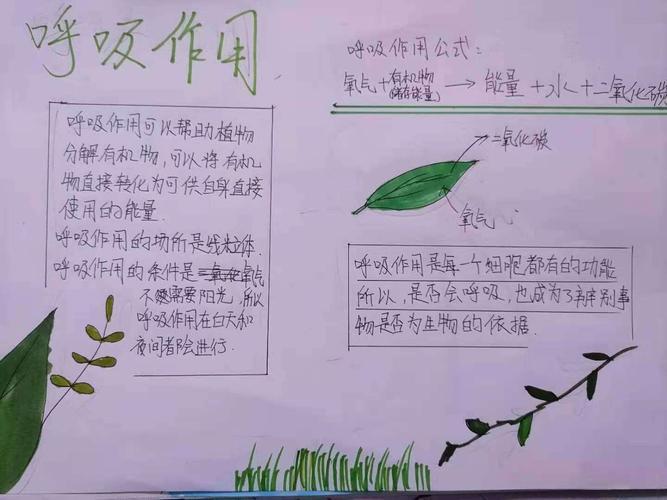 呼吸作用
呼吸作用可以帮助植物
分解有机物，可以将有机
物直接转化为可供自身直接
使用的能量.
呼吸作用的场所是线粒体.
呼吸作用的条件是氧气
不需要阳光,所以
呼吸作用在白天和
夜间都会进行.
呼吸作用公式：
氧气+有机物(储存能量) → 能量+水+二氧化碳
二氧化碳
氧气
呼吸作用是每一个细胞都有的功能
所以,是否会呼吸,也成为了辨别事
物是否为生物的依据.